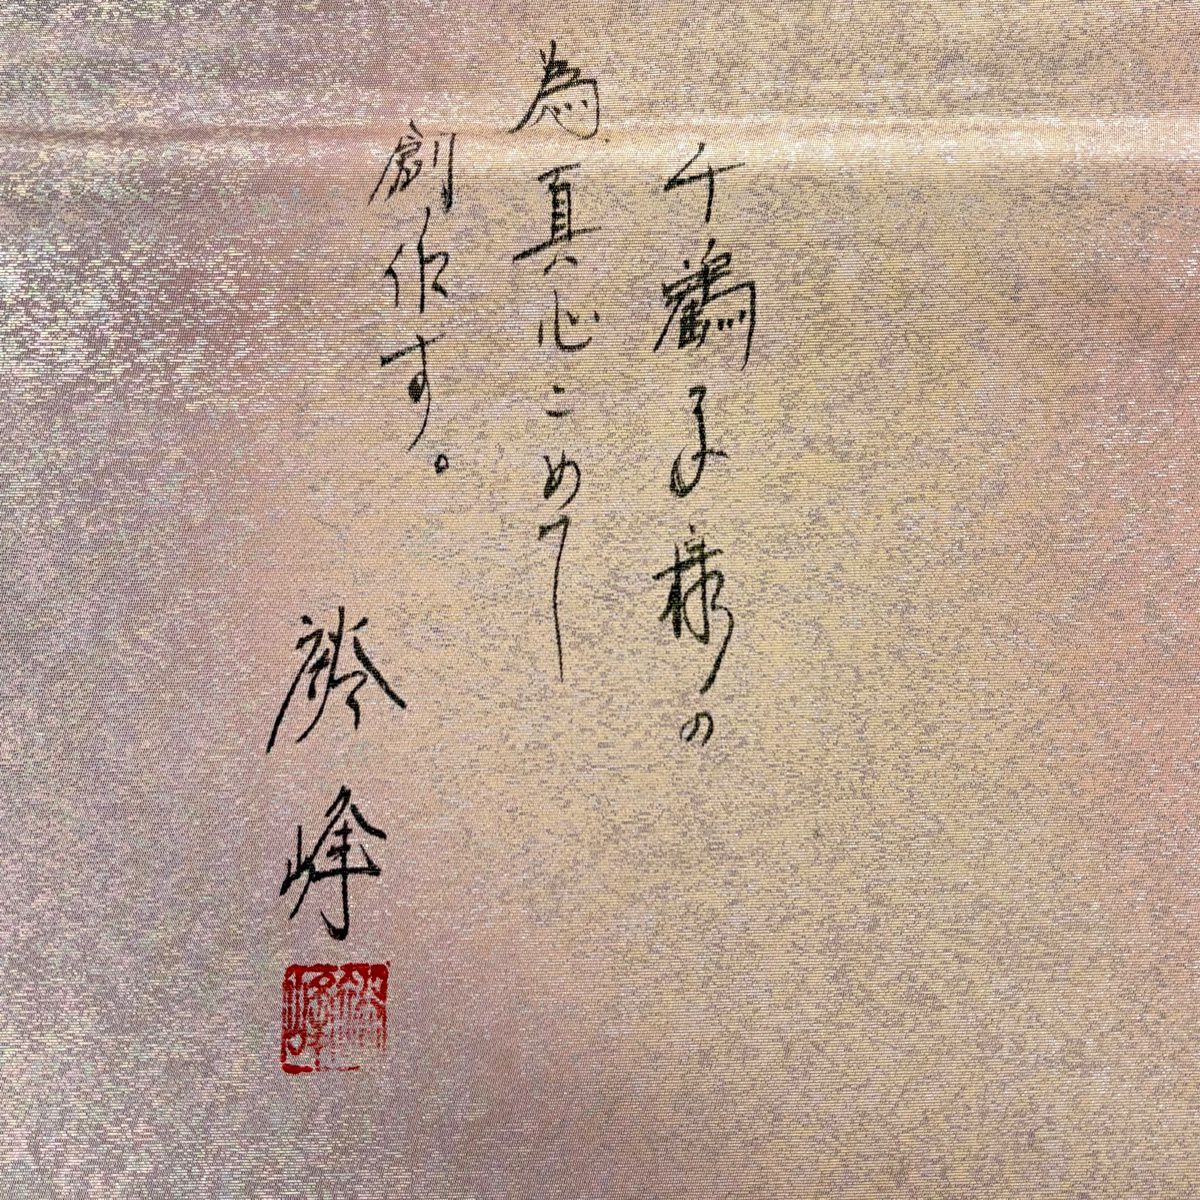 千鶴子様の
為真心こめて
創作す。
峰